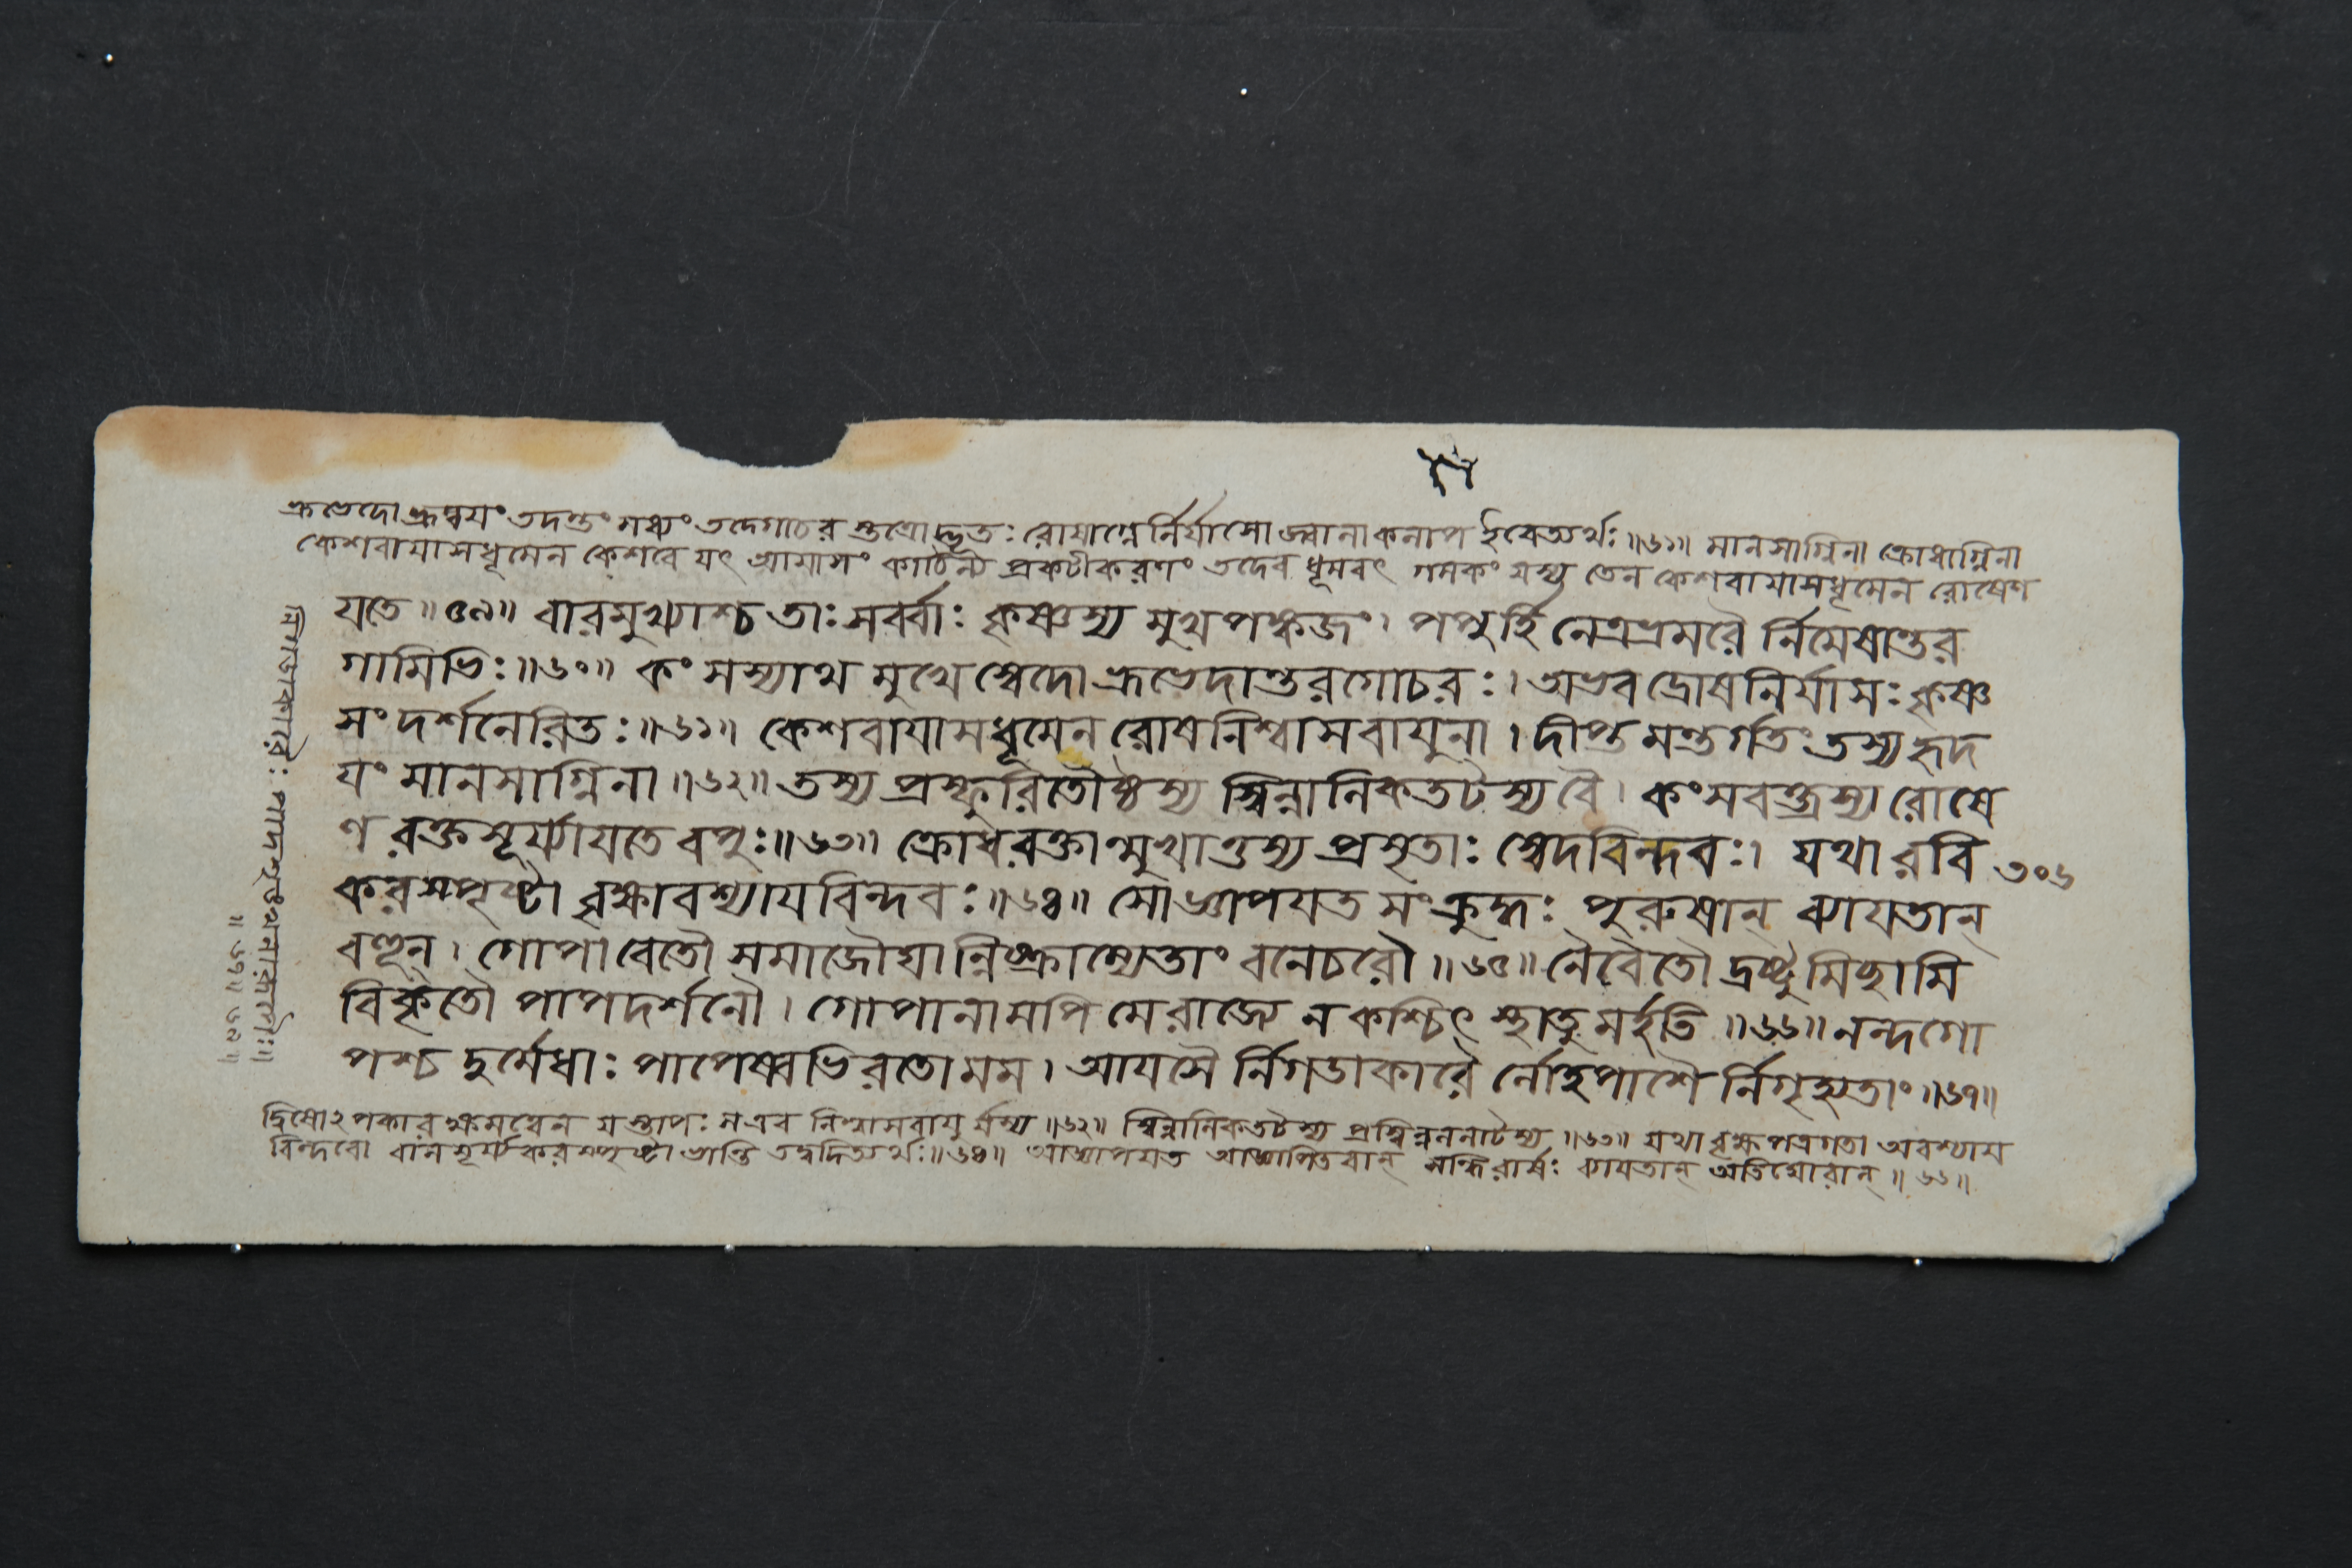 ভ্রূভেদো ভ্রূদ্বয়ং তদন্তং মধ্যং তদ্গোচর স্তত্রোদ্ভূতঃ রোষাগ্নের্নির্যাসো জ্বালা ইবেত্যর্থঃ ॥৬১॥ মানসাগ্নিনা ক্রোধাগ্নিনা
কেশবায়াসধূমেন কেশবে যৎ আয়াসং কাঠিন্য প্রকটীকরণং তদেব ধূমবৎ গমকং যস্য তেন কেশবায়াসধূমেন রোষেণ
যতে ॥৫৯॥ বারমুখ্যাশ্চ তাঃ সর্ব্বাঃ কৃষ্ণস্য মুখপঙ্কজং। পপুর্হি নেত্রভ্রমরৈ র্নিমেষান্তর
গামিভিঃ ॥৬০॥ কংসস্যাথ মুখে স্বেদো ভ্রূভেদান্তরগোচরঃ। অভবদ্রোষনির্যাসঃ কৃষ্ণ
সংদর্শনেরিতঃ ॥৬১॥ কেশবায়াসধূমেন রোষনিশ্বাসবায়ুনা। দীপ্তমন্তর্গতং তস্য হৃদ
যং মানসাগ্নিনা ॥৬২॥ তস্য প্রস্ফুরিতৌষ্ঠস্য স্বিন্নালিকতটস্য বৈ। কংসবক্ত্রস্য রোষে
ণ রক্তসূর্য্যায়তে বপুঃ ॥৬৩॥ ক্রোধরক্তান্মুখাত্তস্য প্রসৃতাঃ স্বেদবিন্দবঃ। যথা রবি ৩০৬
করস্পৃষ্টা বৃক্ষাবশ্যায়বিন্দবঃ ॥৬৪॥ সোঽজ্ঞাপয়ত সংক্রুদ্ধঃ পুরুষান্ ব্যায়তান্
বহূন্। গোপাবেতৌ সমাজৌঘান্নিষ্ক্রাম্যেতাং বনেচরৌ ॥৬৫॥ নৈবৈতৌ দ্রষ্টুমিচ্ছামি
বিকৃতৌ পাপদর্শনৌ। গোপানামপি মে রাজ্যে ন কশ্চিৎ স্থাতুমর্হতি ॥৬৬॥ নন্দগো
পশ্চ দুর্মেধাঃ পাপেষ্বভিরতো মম। আয়সৈ র্নিগডাকারৈ র্লোহপাশৈ র্নিগৃহ্যতাং ॥৬৭॥
দ্বিষোঽপকার ক্ষমত্বেন যস্তাপঃ স এব নিশ্বাসবায়ু র্যস্য ॥৬২॥ স্বিন্নালিকতটস্য প্রস্বিন্নললাটস্য ॥৬৩॥ যথা বৃক্ষপত্রগতা অবশ্যায়
বিন্দবো বালসূর্য্যকরস্পৃষ্টা ভান্তি তদ্বদিত্যর্থঃ ॥৬৪॥ আজ্ঞাপয়ত আজ্ঞাপিতবান্ সন্ধিরার্ষঃ ব্যায়তান্ অতিঘোরান্ ॥৬৬॥
নিগডাকারৈঃ পাদশৃঙ্খলাকারৈঃ॥
॥৬৭॥৬৯॥